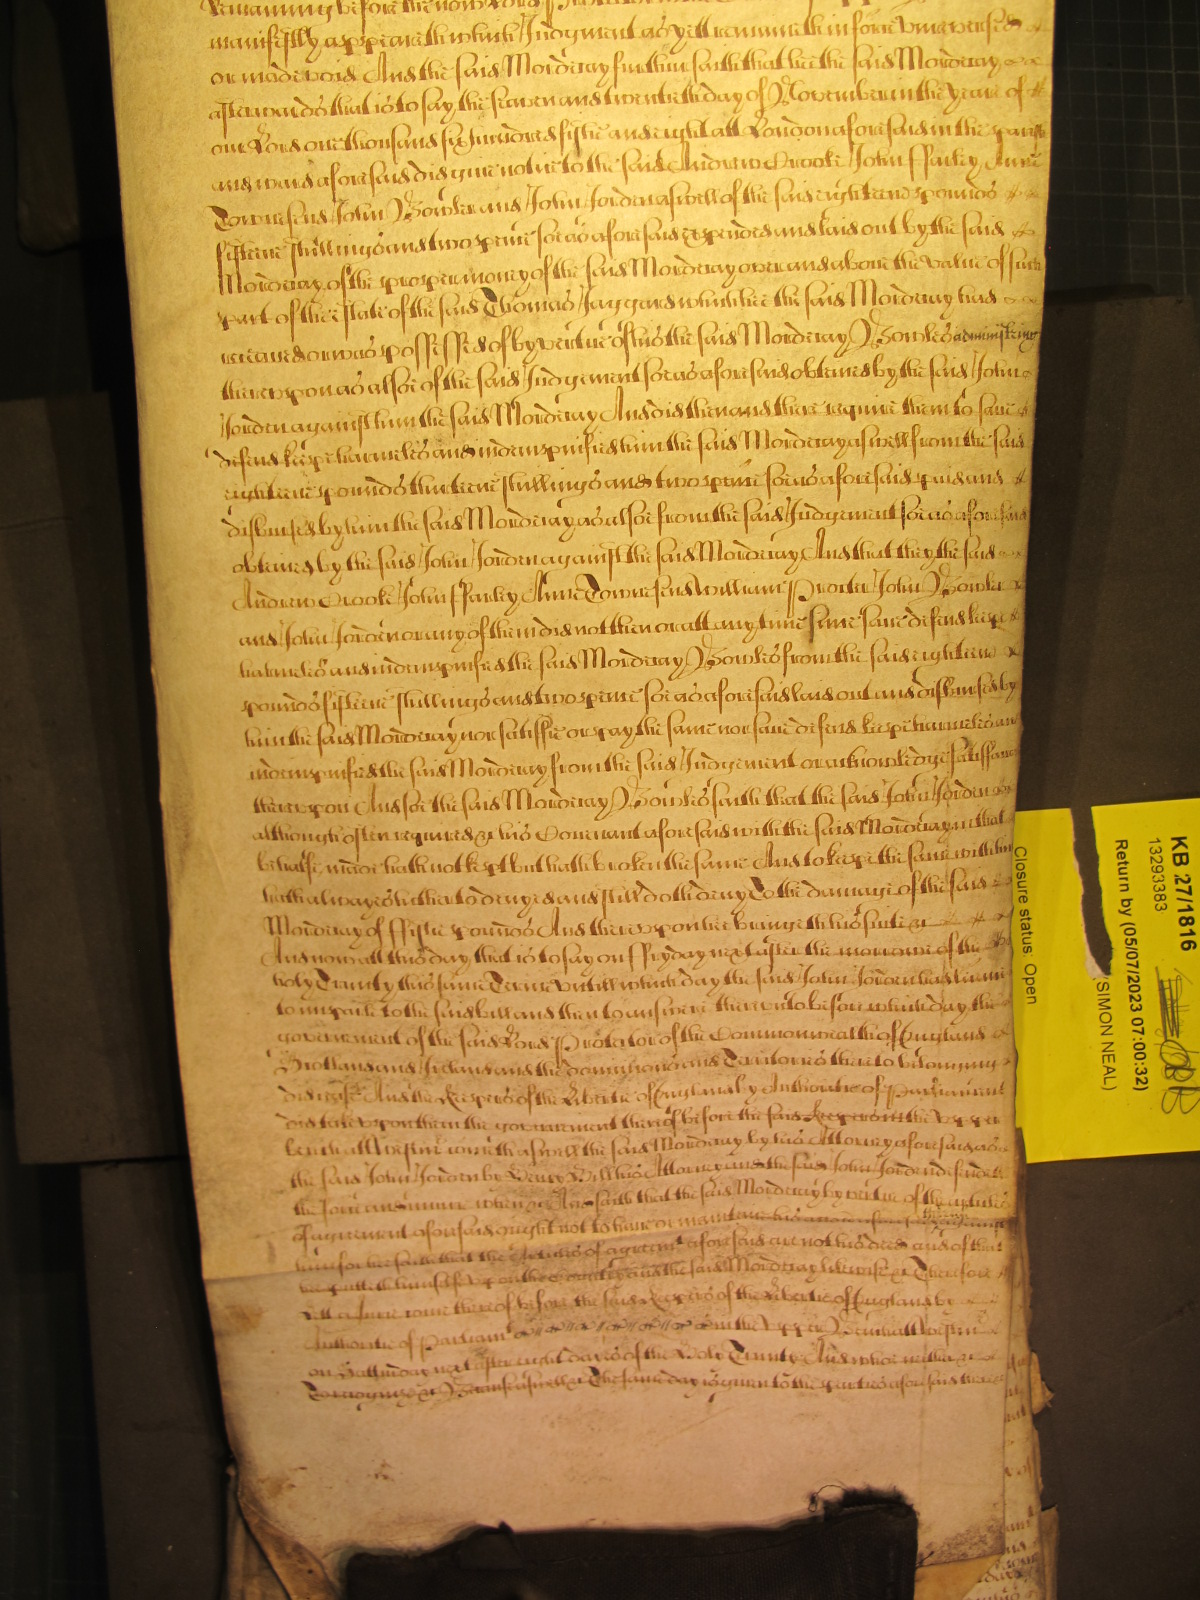 Remaining before the now Lord
manifestly appeareth which Judgment as yett remaineth in force vnreversed
or made void And the said Mordecay further saith that hee the said Mordecay
afterwards that is to say the seaven and twentieth day of November in the yeare of
our Lord one thousand six hundred fiftie and eight att London aforesaid in the parish
and ward aforesaid did give notice to the said Andrew Crooke John Ffarley Anne
Townesend John Bowler and John Jorden aswell of the said eighteene pounds
fifteene shillings and two pence soe as aforesaid expended and laid out by the said
Mordecay of the proper money of the said Mordecay over and above the value of such
part of the estate of the said Thomas Jaggard which hee the said Mordecay had
received or was possessed of by vertue of his the said Mordecay Bowles administring
therevpon as alsoe of the said Judgement soe as aforesaid obteined by the said John
Jorden against him the said Mordecay And did then and there require them to save
defend keepe harmeles and indempnified him the said Mordecay aswell from the said
eighteene pounds thirteene shillings and two pence soe as aforesaid paid and
disbursed by him the said Mordecay as alsoe from the said Judgement soe as aforesaid
obteined by the said John Jorden against the said Mordecay And that they the said
Andrew Crooke John Ffarley Anne Townesend William Procter John Bowler
and John Jorden or any of them did not then or att any time since save defend keepe
harmeles and indempnified the said Mordecay Bowles from the said eighteene
pounds fifteene shillings and two pence soe as aforesaid laid out and disbursed by
him the said Mordecay nor satisfie or pay the same nor save defend keepe harmeles and
indempnified the said Mordecay from the said Judgement or acknowledge satisfaccon
therevpon And soe the said Mordecay Bowles saith that the said John Jorden
although often required &c his Covenant aforesaid with the said Mordecay in that
behalfe made hath not kept but hath broken the same And to keepe the same with him
hath alwayes hitherto denyed and still doth deny To the damage of the said
Mordecay of ffiftie pounds And therevpon hee bringeth his suite &c
And now att this day that is to say on ffryday next after the morrowe of the
holy Trinity this same Terme vntill which day the said John Jorden had leave
to imparle to the said bill and then to answere therevnto before which day the
government of the said Lord Protector of the Commonwealth of England
Scotland and Ireland and the dominions and Territories thereto belonging
did cease And the Keepers of the Libertie of England by Authoritie of Parliament
did take vpon them the government thereof before the said Keepers in the Vpper
bench att Westm cometh aswell the said Mordecay by his Attorney aforesaid as
the said John Jorden by Henry Hill his Attorney and the said John Jorden defendeth
the force and iniurie when &c And saith that the said Mordecay by vertue of the articles
of agreement aforesaid ought not to have or maintaine his accon aforesaid against
him for hee saith that the Articles of agreemt aforesaid are not his deed and of this
hee putteth himselfe vpon the Country and the said Mordecay likewise &c Therefore
lett a Jurie come thereof before the said Keepers of the Libertie of England by
Authoritie of Parliamt in the Vpper Bench att Westm
on Satturday next after eight dayes of the Holy Trinity And who neither &c
To recognize &c Because aswell &c The same day is given to the parties aforesaid there &c
KB 27/1816
13293383
Return by (05/07/2023 07:00:32)
(SIMON NEAL)
Closure status: Open